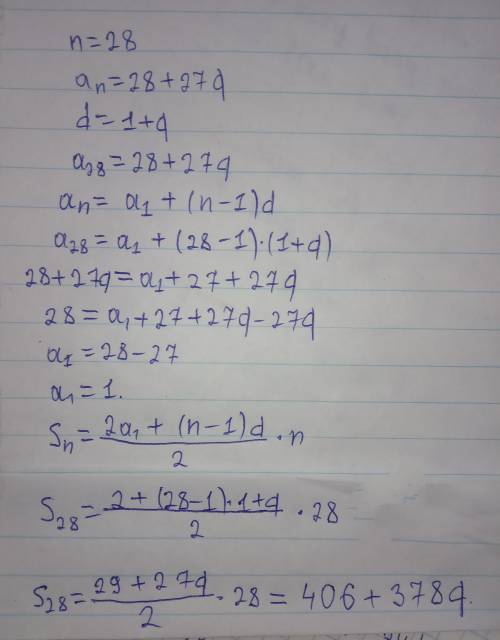 n=28
aₙ=28+27q
d=1+q
a₂₈=28+27q
aₙ= a₁ + (n-1)d
a₂₈=a₁ + (28-1)·(1+q)
28+27q=a₁+27+27q
28=a₁+27+27q-27q
a₁=28-27
a₁=1.
Sₙ= (2a₁ + (n-1)d)/2 · n
S₂₈= (2+(28-1)·1+q)/2 · 28
S₂₈= (29+27q)/2 · 28 = 406+378q.